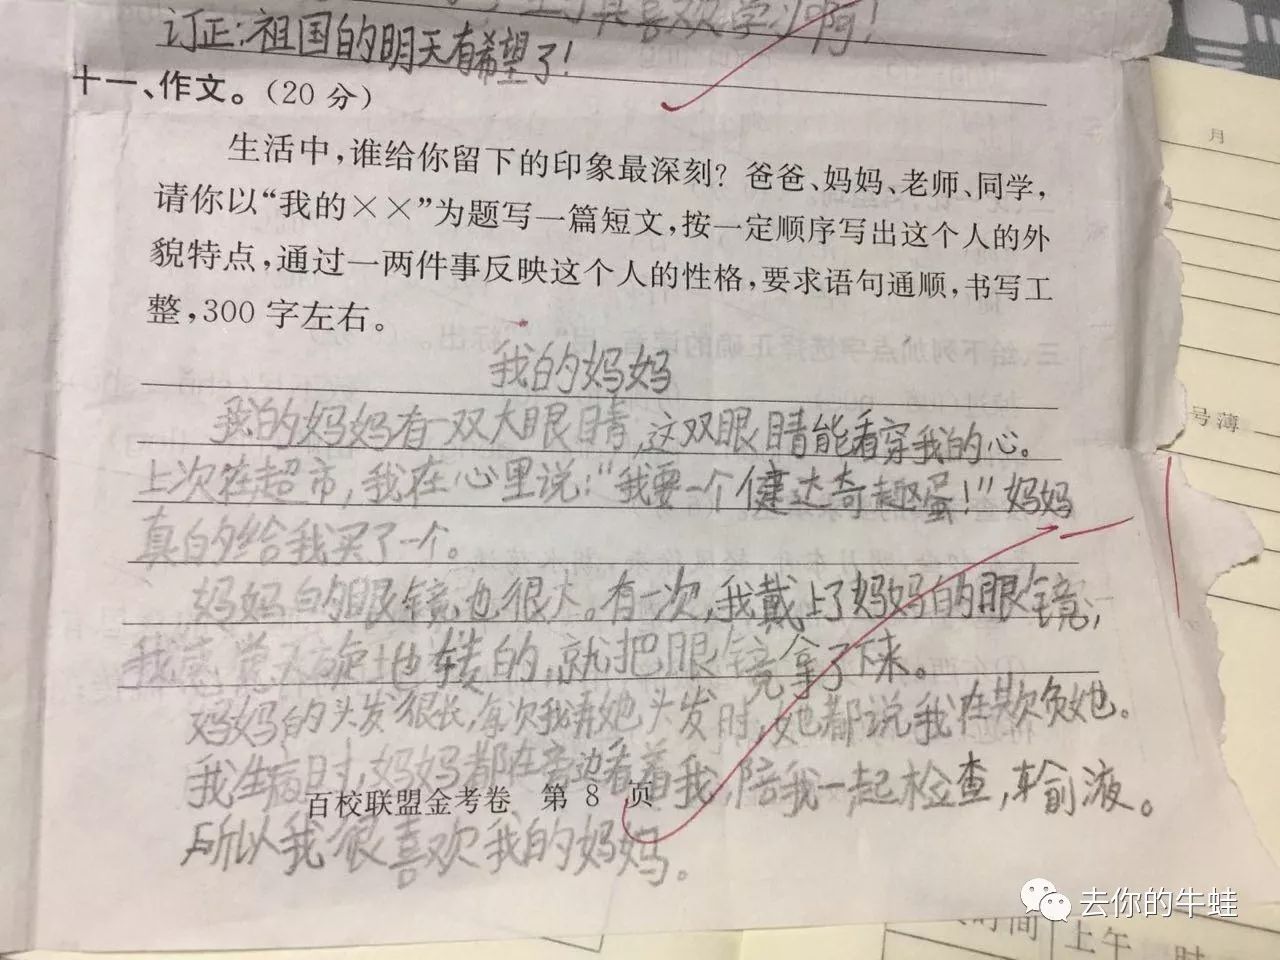 喜欢学习啊！
订正：祖国的明天有希望了！
十一、作文。（20 分）
生活中，谁给你留下的印象最深刻？爸爸、妈妈、老师、同学，
请你以“我的××”为题写一篇短文，按一定顺序写出这个人的外
貌特点，通过一两件事反映这个人的性格，要求语句通顺，书写工
整，300 字左右。
我的妈妈
我的妈妈有一双大眼睛，这双眼睛能看穿我的心。
上次在超市，我在心里说：“我要一个健达奇趣蛋！”妈妈
真的给我买了一个。
妈妈的眼镜也很大。有一次，我戴上了妈妈的眼镜，
我感觉天旋地转的，就把眼镜拿了下来。
妈妈的头发很长，每次我弄她头发时，她都说我在欺负她。
我生病时，妈妈都在旁边看着我，陪我一起检查，输液。
百校联盟金考卷 第 8 页
所以我很喜欢我的妈妈。
月
号薄
去你的牛蛙
时间 上午 时